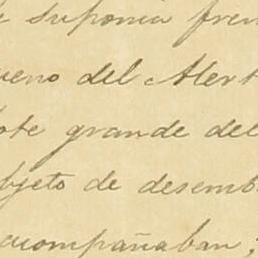 e suponia fren
ueno del Alert
lote grande del
bjeto de desemb
acompañaban;